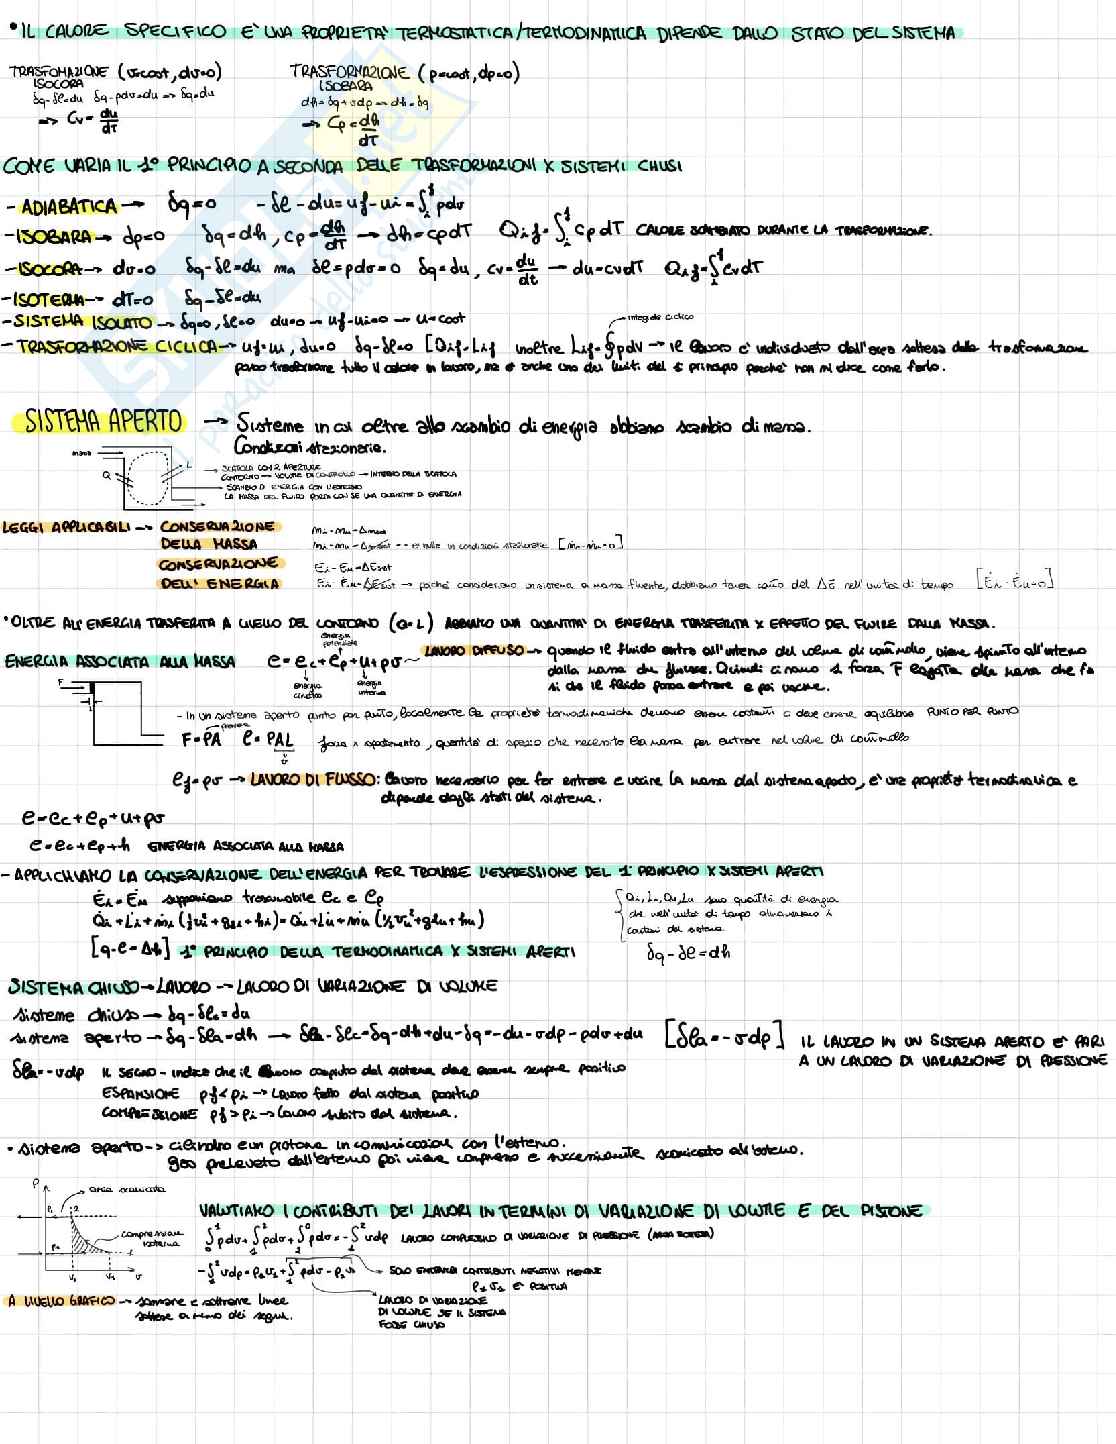 • IL CALORE SPECIFICO E' UNA PROPRIETA' TERMOSTATICA/TERMODINAMICA DIPENDE DALLO STATO DEL SISTEMA
TRASFOMAZIONE (v=cost, dv=0)
ISOCORA
δq-δl=du δq-pdv=du => δq=du
=> Cv = du/dT
TRASFORMAZIONE (p=cost, dp=0)
ISOBARA
dh=δq+vdp => dh=δq
-> Cp = dh/dT
COME VARIA IL 1° PRINCIPIO A SECONDA DELLE TRASFORMAZIONI X SISTEMI CHIUSI
- ADIABATICA -> δq=0 -δl-du=uf-ui=∫pdv
- ISOBARA -> dp=0 δq=dh, cp=dh/dT -> dh=cpdT Qif=∫cpdT CALORE SCAMBIATO DURANTE LA TRASFORMAZIONE.
- ISOCORA -> dv=0 δq-δl=du ma δl=pdv=0 δq=du, cv=du/dt -> du=cvdT Qif=∫cvdT
- ISOTERMA -> dT=0 δq-δl=du
- SISTEMA ISOLATO -> δq=0, δl=0 du=0 -> uf-ui=0 -> u=cost
integrale ciclico
- TRASFORMAZIONE CICLICA -> uf=ui, du=0 δq-δl=0 [Qif=Lif inoltre Lif=∮pdv -> il lavoro e' individuato dall'area sottesa dalla trasformazione
posso trasformare tutto il calore in lavoro, ma e' anche uno dei limiti del 1° principio perche' non mi dice come farlo.
SISTEMA APERTO -> Sistema in cui oltre allo scambio di energia abbiamo scambio di massa.
Condizioni stazionarie.
massa
Q
L
-> SCATOLA CON 2 APERTURE
CONTORNO -> VOLUME DI CONTROLLO -> INTERNO DELLA SCATOLA
-> SCAMBIO DI ENERGIA CON L'ESTERNO
LA MASSA DEL FLUIDO PORTA CON SE UNA QUANTITA' DI ENERGIA
LEGGI APPLICABILI -> CONSERVAZIONE
DELLA MASSA
mi-mu=Δmsist
ṁi-ṁu=Δṁsist -- e' nulla in condizioni stazionarie [ṁi-ṁu=0]
CONSERVAZIONE
DELL'ENERGIA
Ei-Eu=ΔEsist
Ėi-Ėu=ΔĖsist -> poiché consideriamo un sistema a massa fluente, dobbiamo tener conto del ΔE nell'unita' di tempo [Ėi-Ėu=0]
• OLTRE ALL'ENERGIA TRASFERITA A LIVELLO DEL CONTORNO (Q-L) ABBIAMO UNA QUANTITA' DI ENERGIA TRASFERITA X EFFETTO DEL FLUIRE DALLA MASSA.
energia
potenziale
ENERGIA ASSOCIATA ALLA MASSA e=ec+ep+u+pv
energia
cinetica
energia
interna
LAVORO DIFFUSO -> quando il fluido entra all'interno del volume di controllo, viene spinto all'interno
dalla massa che fluisce. Quindi ci sara' 1 forza F legata alla massa che fa
si che il fluido possa entrare e poi uscire.
F
L
- In un sistema aperto punto per punto, localmente le proprieta' termodinamiche devono essere costanti e deve essere equilibrio PUNTO PER PUNTO
pressione
F=PA ℓ=PAL forza x spostamento, quantita' di spazio che necessita la massa per entrare nel volume di controllo
v
ℓf=pv -> LAVORO DI FLUSSO: lavoro necessario per far entrare e uscire la massa dal sistema aperto, e' una proprieta' termodinamica e
dipende dagli stati del sistema.
e=ec+ep+u+pv
e=ec+ep+h ENERGIA ASSOCIATA ALLA MASSA
- APPLICHIAMO LA CONSERVAZIONE DELL'ENERGIA PER TROVARE L'ESPRESSIONE DEL 1° PRINCIPIO X SISTEMI APERTI
Ėi=Ėu supponiamo trascurabile ec e ep
Q̇i+L̇i+ṁi(½vi²+gzi+hi)=Q̇u+L̇u+ṁu(½vu²+gzu+hu)
[q-l=Δh] 1° PRINCIPIO DELLA TERMODINAMICA X SISTEMI APERTI
Qi, Li, Qu, Lu sono quantita' di energia
che nell'unita' di tempo attraversano i
contorni del sistema
δq-δl=dh
SISTEMA CHIUSO -> LAVORO -> LAVORO DI VARIAZIONE DI VOLUME
sistema chiuso -> δq-δlc=du
sistema aperto -> δq-δla=dh -> δla-δlc=δq-dh+du-δq=-du-vdp-pdv+du [δla=-vdp] IL LAVORO IN UN SISTEMA APERTO E' PARI
A UN LAVORO DI VARIAZIONE DI PRESSIONE
δla=-vdp IL SEGNO - indica che il lavoro compiuto dal sistema deve essere sempre positivo
ESPANSIONE pf<pi -> Lavoro fatto dal sistema positivo
COMPRESSIONE pf>pi -> Lavoro subito dal sistema.
• sistema aperto -> cilindro e un pistone in comunicazione con l'esterno.
gas prelevato dall'esterno poi viene compresso e successivamente scaricato all'esterno.
P
area tratteggiata
P2
2
compressione
isoterma
P1
V2
V1
v
VALUTIAMO I CONTRIBUTI DEI LAVORI IN TERMINI DI VARIAZIONE DI VOLUME E DEL PISTONE
∫pdv+∫pdv+∫pdv=-∫vdp LAVORO COMPLESSIVO DI VARIAZIONE DI PRESSIONE (AREA SOTTESA)
-∫vdp=p1v1+∫pdv-p2v2 -> SOLO ENTRAMBI CONTRIBUTI NEGATIVI MENTRE
p1v1 E' POSITIVA
LAVORO DI VARIAZIONE
DI VOLUME SE IL SISTEMA
FOSSE CHIUSO
A LIVELLO GRAFICO -> sommare e sottrarre linee
sottese a meno dei segni.